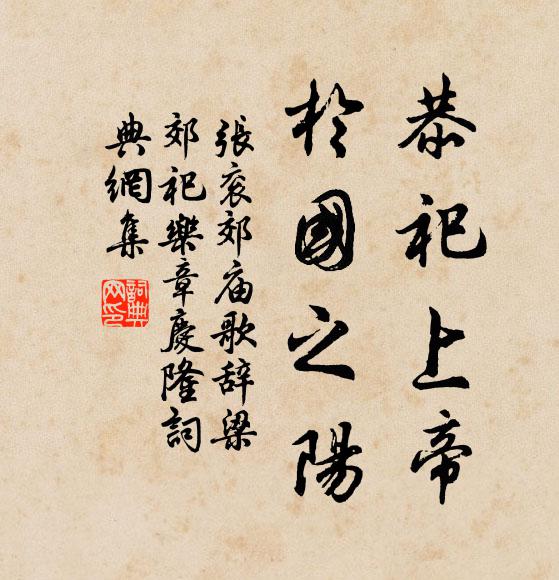 恭祀上帝
於國之陽
張衮郊庙歌辞梁
郊祀樂章慶隆詞
典網集
詞典
网印